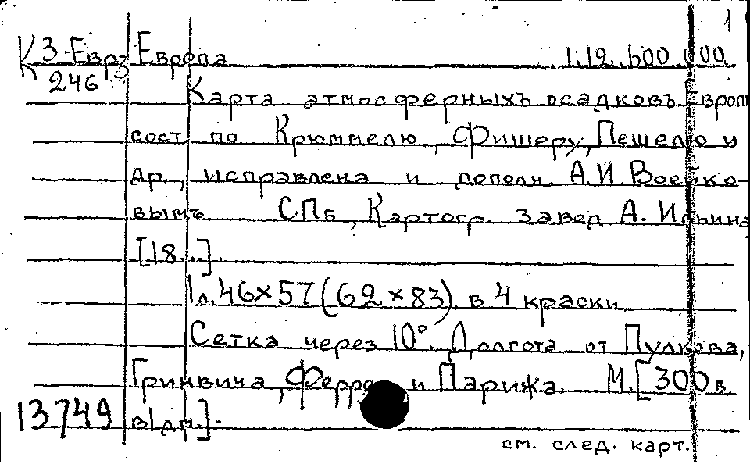 1
К 3-Евр. Европа 1:12.600.000
246
Карта атмосферныхъ осадковъ Европ
сост. по Крюммелю, Фишеру, Пешелю и
др., исправлена и дополн. А.И Воейко-
вымъ СПб, Картогр. завед. А. Ильина
[18..].
1 л. 46×57 (62×83) в 4 краски
Сетка через 10°. Долгота от Пулкова,
Гринвича, Ферро и Парижа. М.[300 в
13749 в 1 дм.].
см. след. карт.